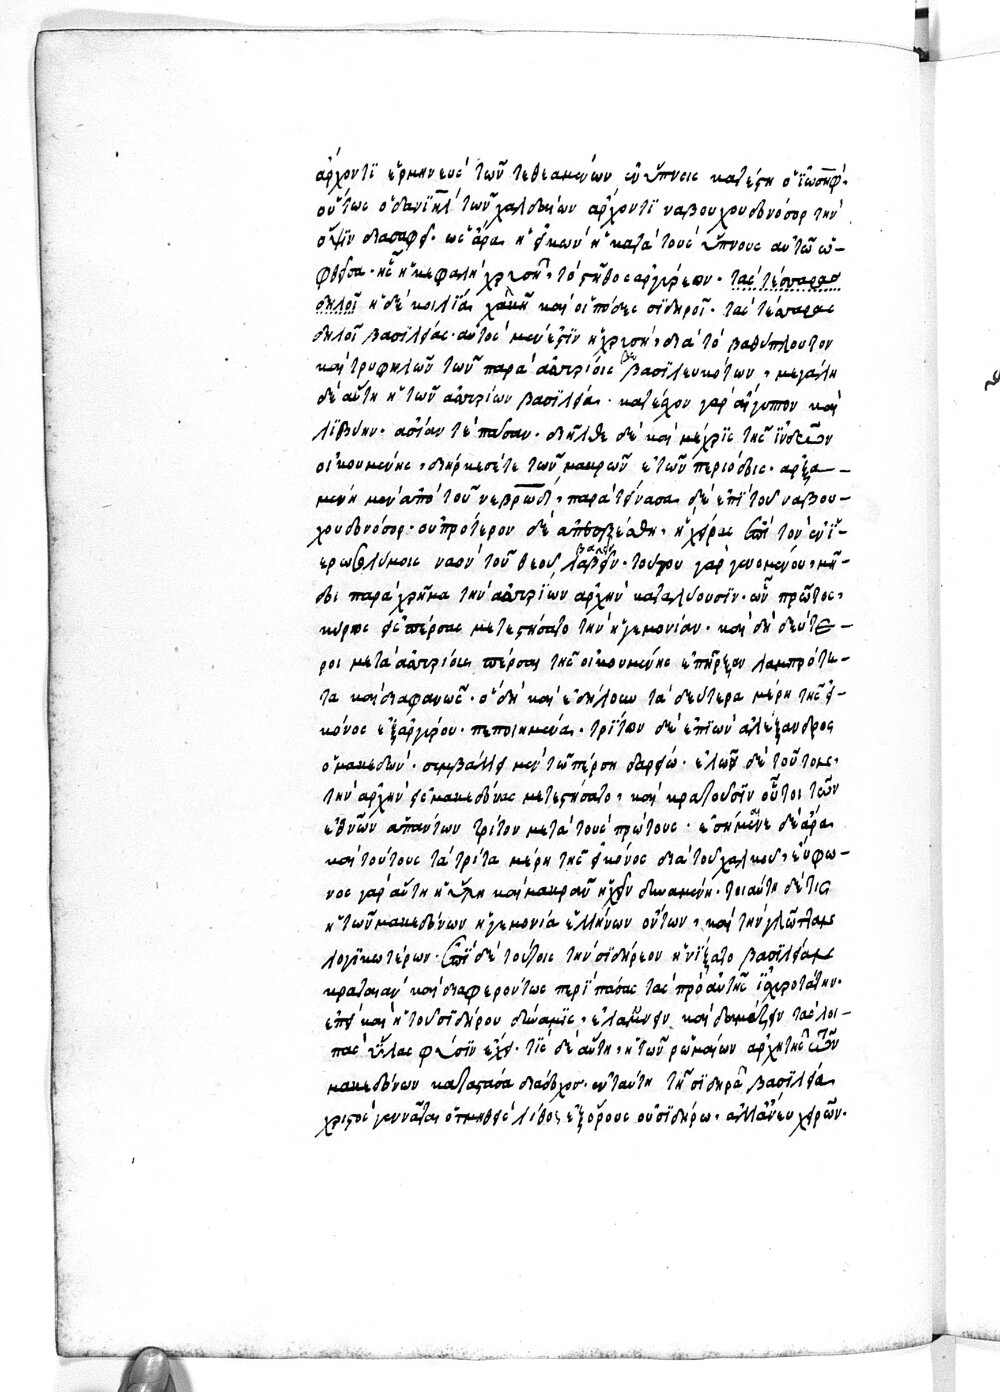 ἄρχοντι ἑρμηνεὺς τῶν τεθεαμένων ἐν ὕπνοις κατέστη ὁ ἰωσήφ.
οὕτως ὁ δανιὴλ τῶν χαλδαίων ἄρχοντι ναβουχουδονόσορ τὴν
ὄψιν διασαφεῖ. ὡς ἄρα ἡ εἰκὼν ἡ κατὰ τοὺς ὕπνους αὐτῶ ὤ-
φθεῖσα. ἧς ἡ κεφαλὴ χρυσῆ. τὸ στῆθος ἀργύρεον. τὰς τέσσαρας
δηλοῖ ἡ δὲ κοιλία χαλκῆ καὶ οἱ πόδες σιδηροῖ. τὰς τέσσαρας
δηλοῖ βασιλείας. αὐτὸς μὲν ἐστὶν ἡ χρυσῆ, διὰ τὸ βαθύπλουτον
καὶ τρυφηλὸν τῶν παρὰ ἀσσυρίοις βεβασιλευκότων, μεγάλη
δὲ αὕτη ἡ τῶν ἀσσυρίων βασιλεία. κατέσχον γὰρ αἴγυπτον καὶ
λιβύην. ἀσίαν τὲ πᾶσαν. διῆλθε δὲ καὶ μέχρις τῆς ἰνδῶν
οἰκουμένης, διήρκεσέ τε τῶν μακρῶν ἐτῶν περιόδοις. ἀρξα-
μένη μὲν ἀπὸ τοῦ νεβρώδ, παρατείνασα δὲ ἐπὶ τοῦ ναβου-
χουδονόσορ. οὐ πρότερον δὲ ἀπεσβέσθη, ἢ χεῖρας ἐπὶ τὸν ἐν ἱ-
εροσολύμοις ναὸν τοῦ θεοῦ βαλεῖν. τούτου γὰρ γενομένου, μῆ-
δοι παραχρῆμα τὴν ἀσσυρίων ἀρχὴν καταλύουσιν. ὧν πρῶτος,
κῦρος εἰς πέρσας μετεστήσατο τὴν ἡγεμονίαν. καὶ δὴ δεύτε-
ροι μετὰ ἀσσυρίους πέρσαι τῆς οἰκουμένης ἐπῆρξαν λαμπρότα-
τα καὶ διαφανῶς. ὃ δὴ καὶ ἐδήλου τὰ δεύτερα μέρη τῆς εἰ-
κόνος ἐξ ἀργύρου πεποιημένα. τρίτον δὲ ἐπιὼν ἀλέξανδρος
ὁ μακεδών. συμβάλλει μὲν τῶ πέρση δαρείω. ἑλὼν δὲ τοῦτον,
τὴν ἀρχὴν εἰς μακεδόνας μετεστήσατο, καὶ κρατοῦσιν οὗτοι τῶν
ἐθνῶν ἁπάντων τρίτον μετὰ τοὺς πρώτους. ἐσήμαινε δὲ ἄρα
καὶ τούτους τὰ τρίτα μέρη τῆς εἰκόνος διὰ τοῦ χαλκοῦ, εὔφω-
νος γὰρ αὕτη ἡ ὕλη καὶ μακρὰν ἠχεῖν δυναμένη. τοιαύτη δέ τις
ἡ τῶν μακεδόνων ἡγεμονία ἑλλήνων ὄντων, καὶ τὴν γλῶτταν
λογικωτέρων. ἐπὶ δὲ τούτοις τὴν σιδήρεον ἠνίξατο βασιλείαν
κραταιὰν καὶ διαφερόντως περὶ πάσας τὰς πρὸ αὐτῆς ἰσχυροτάτην.
ἐπεὶ καὶ ἡ τοῦ σιδήρου δύναμις, ἐλαύνειν καὶ δαμάζειν τὰς λοι-
πὰς ὕλας φύσιν ἔχει. τίς δὲ αὕτη, ἡ τῶν ρωμαίων ἀρχὴ τῆς τῶν
μακεδόνων καταστᾶσα διάδοχος. ἐν ταύτη τῆ σιδηρᾶ βασιλεία
χριστὸς γεννᾶται ὁ τμηθεὶς λίθος ἐξ ὄρους οὐ σιδήρω. ἀλλ' ἄνευ χειρῶν.